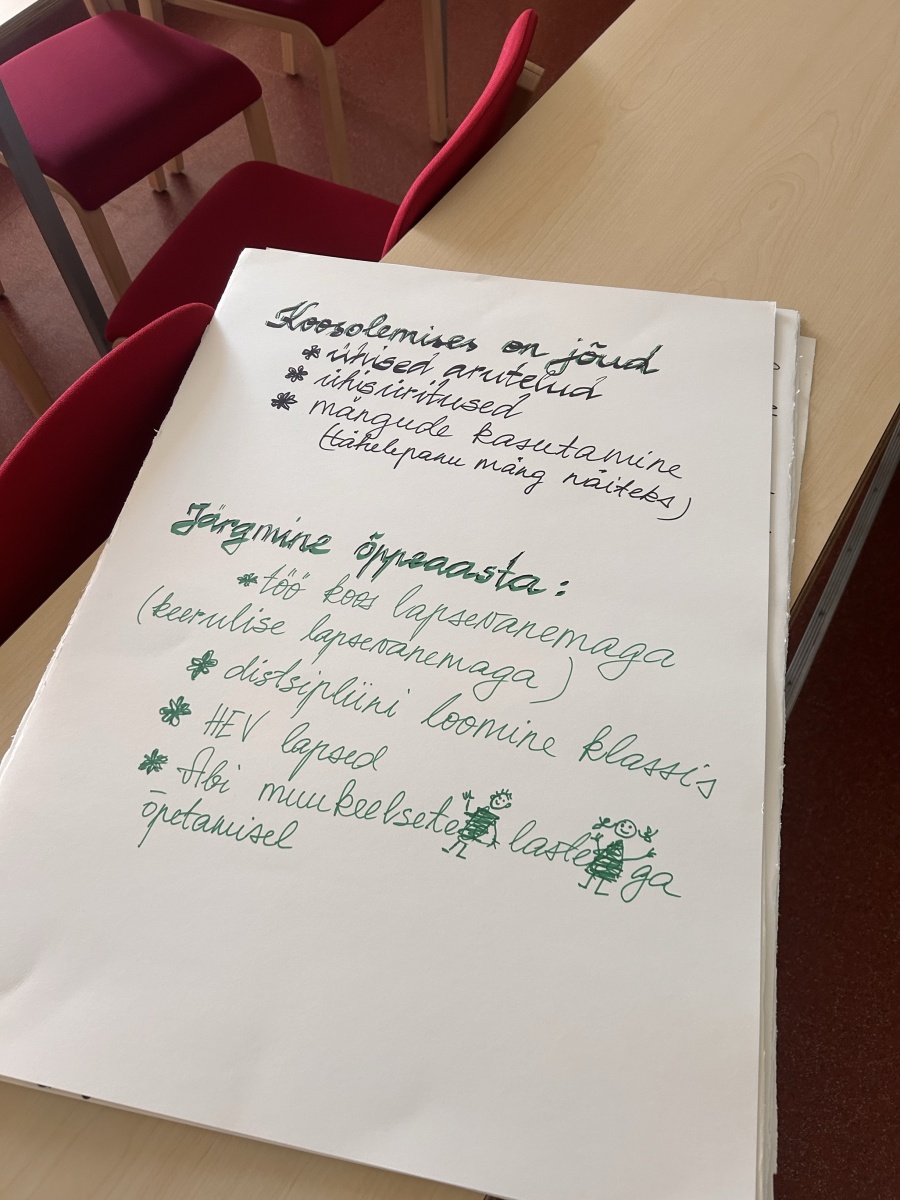 Koosolemises on jõud
* ühised arutelud
* ühisüritused
* mängude kasutamine
(tähelepanu mäng näiteks)
Järgmine õppeaasta:
* töö koos lapsevanemaga
(keerulise lapsevanemaga)
* distsipliini loomine klassis
* HEV lapsed
* Abi muukeelsete lastega
õpetamisel